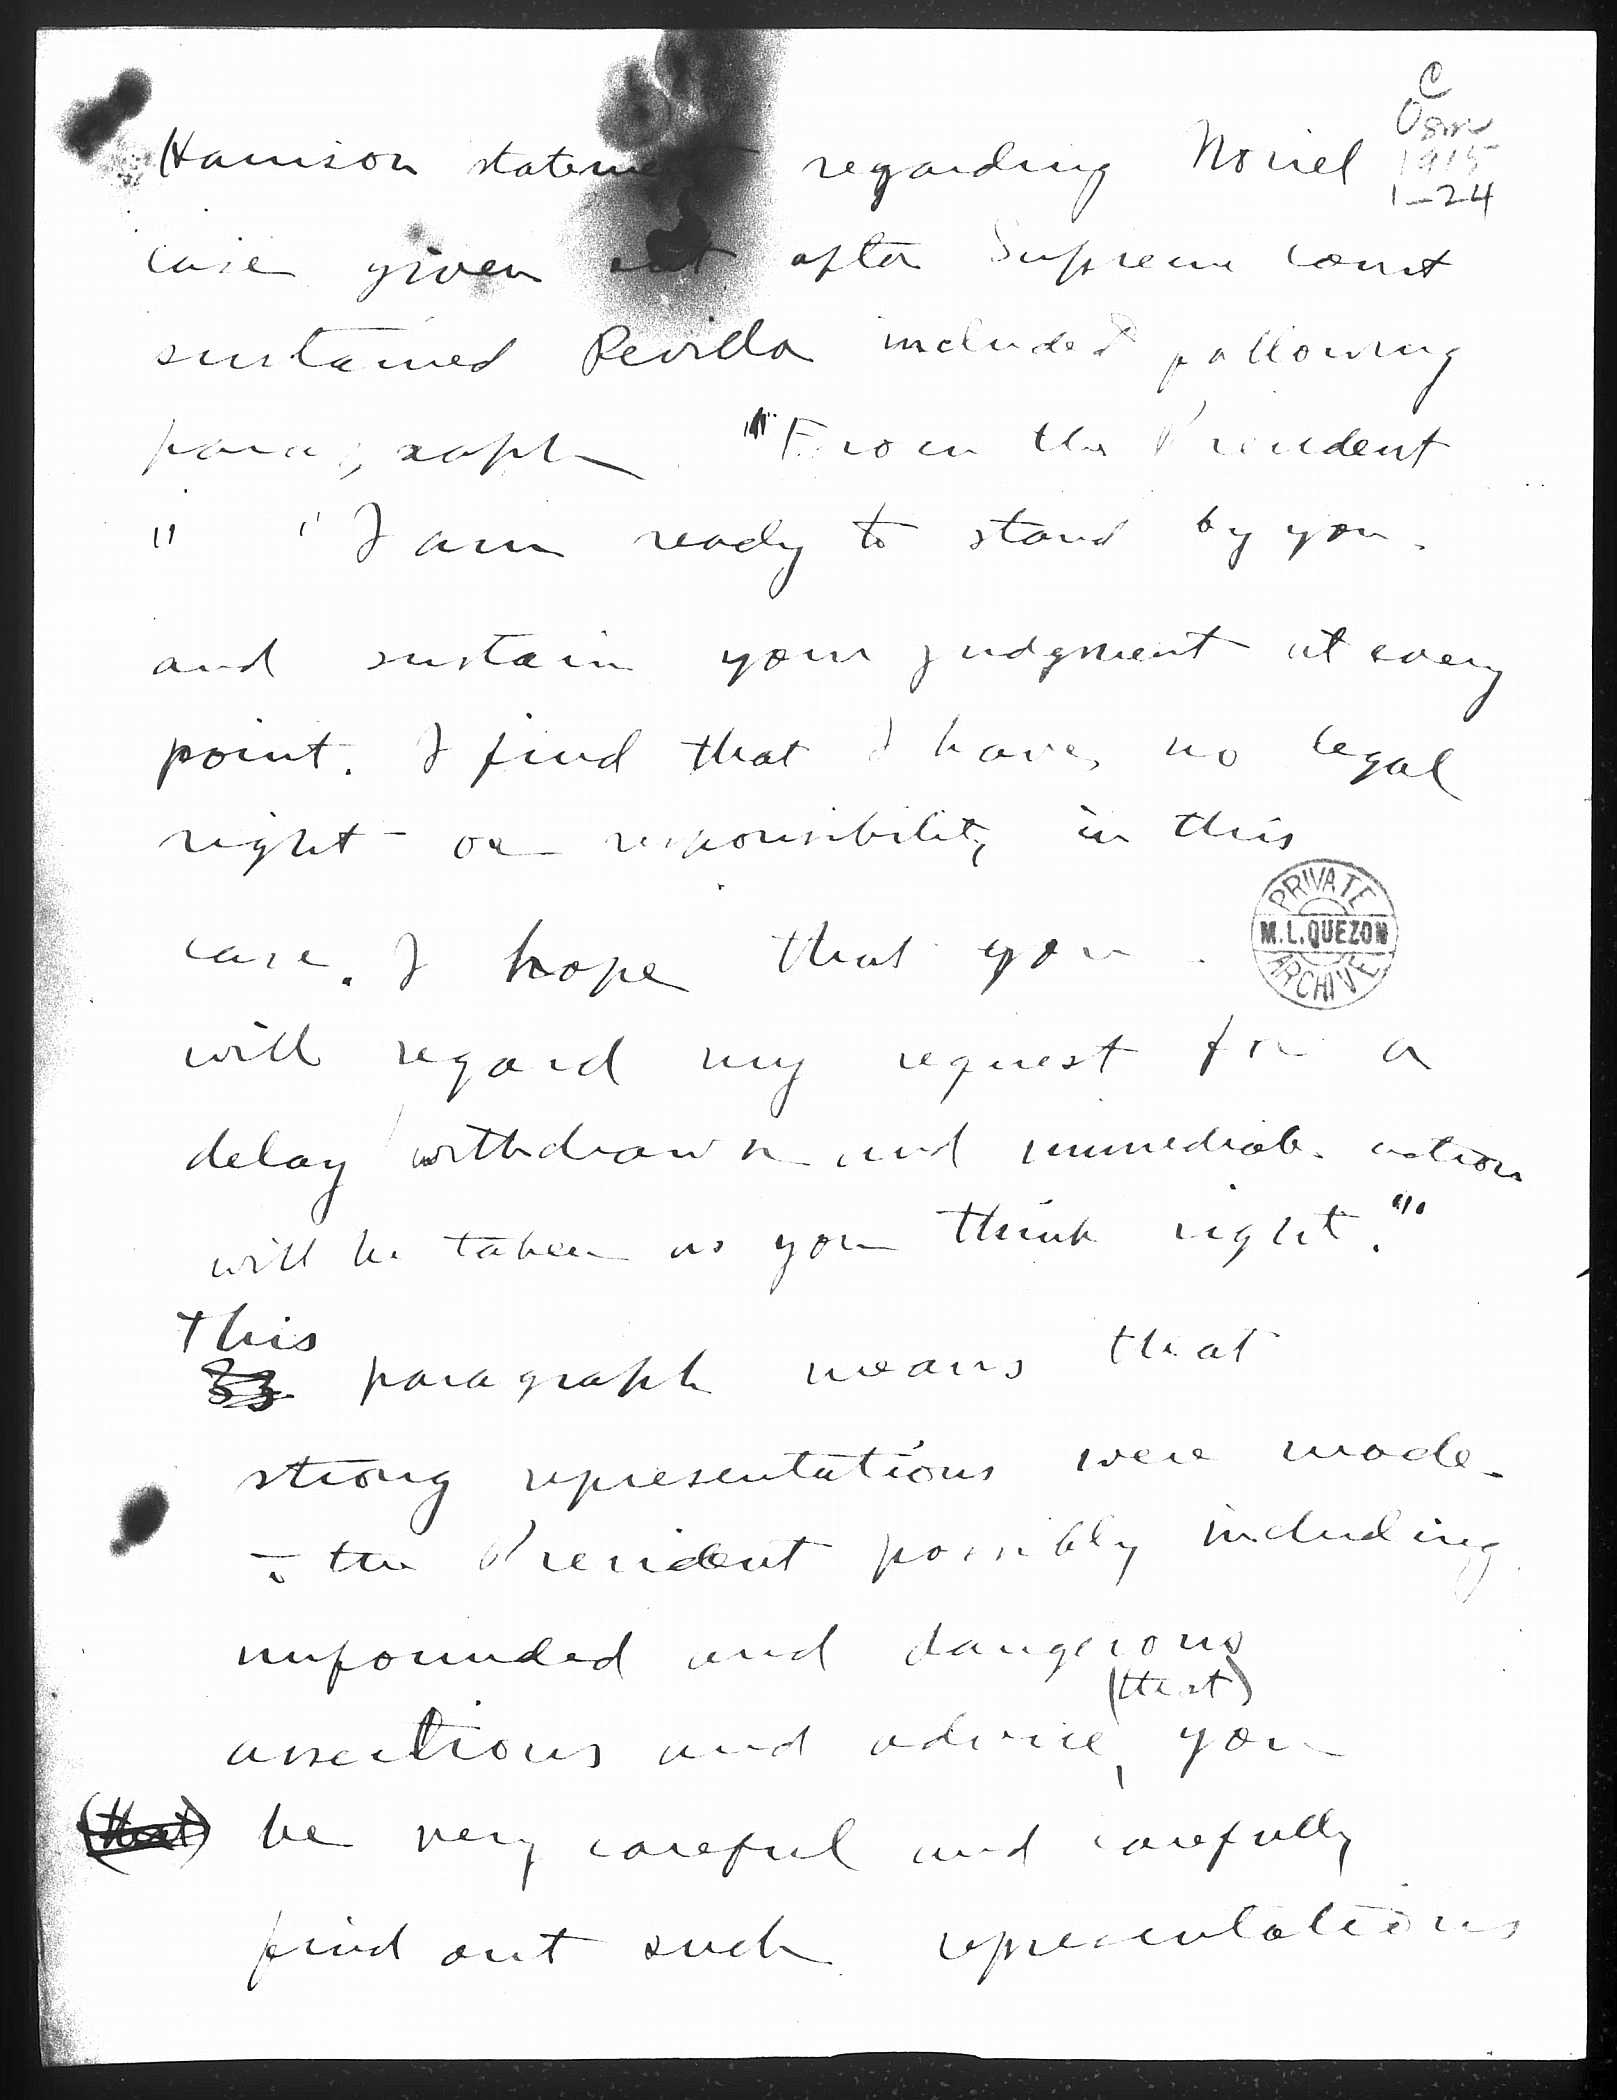 C
Osm
1915
1-24
Harrison statement regarding Noriel
case given out after Supreme Court
sustained Revilla included following
paragraph "'From the President
" 'I am ready to stand by you
and sustain your judgment at every
point. I find that I have no legal
right or responsibility in this
case. I hope that you
will regard my request for a
delay withdrawn and immediate action
will be taken as you think right.'"
This
paragraph means that
strong representations were made
the President possibly including
unfounded and dangerous
(that)
assertions and advice, you
(that) be very careful and carefully
find out such representations
PRIVATE
M.L.QUEZON
ARCHIVE